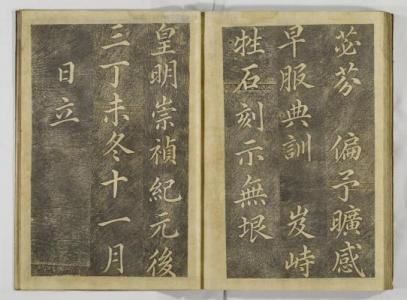 苾芬 偏予曠感
早服典訓 岌峙
牲石刻示無垠
皇明崇禎紀元後
三丁未冬十一月
日立